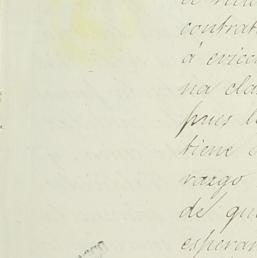 contrat
á evicc
na cla
pues l
tiene e
rargo
de qu
esperan